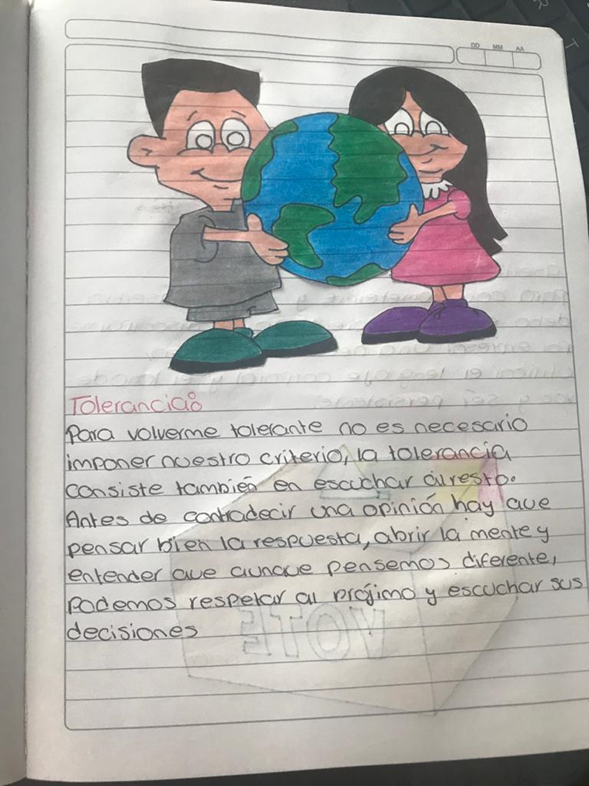 DD MM AA
Tolerancia:
Para volverme tolerante no es necesario
imponer nuestro criterio, la tolerancia
consiste también en escuchar al resto.
Antes de contradecir una opinión hay que
pensar bien la respuesta, abrir la mente y
entender que aunque pensemos diferente,
podemos respetar al prójimo y escuchar sus
decisiones
VOTE